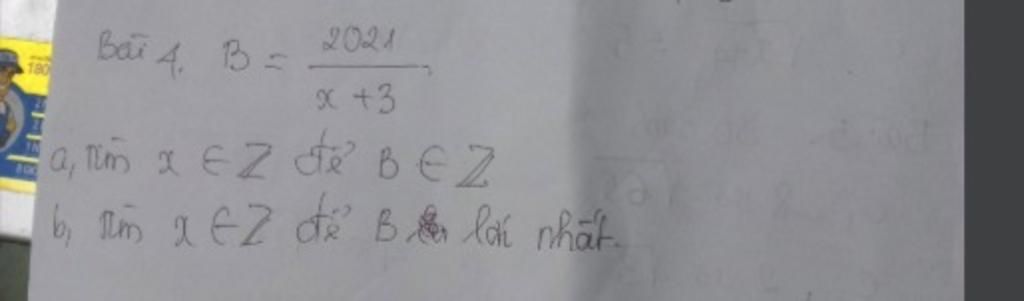 Bài 4. B = 2021 / x + 3
a, Tìm x ∈ Z để B ∈ Z
b, Tìm x ∈ Z để B lớn nhất.
180